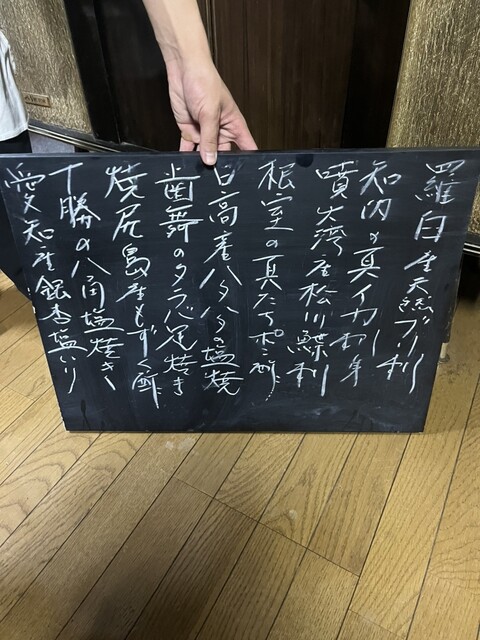 羅臼産天然ブリ刺
知内の真イカ刺身
噴火湾産松川鰈刺
根室の真たちポン酢
日高産ハタハタの塩焼
歯舞のタラバ足焼き
焼尻島産もずく酢
十勝の八角塩焼き
愛知産銀杏塩いり